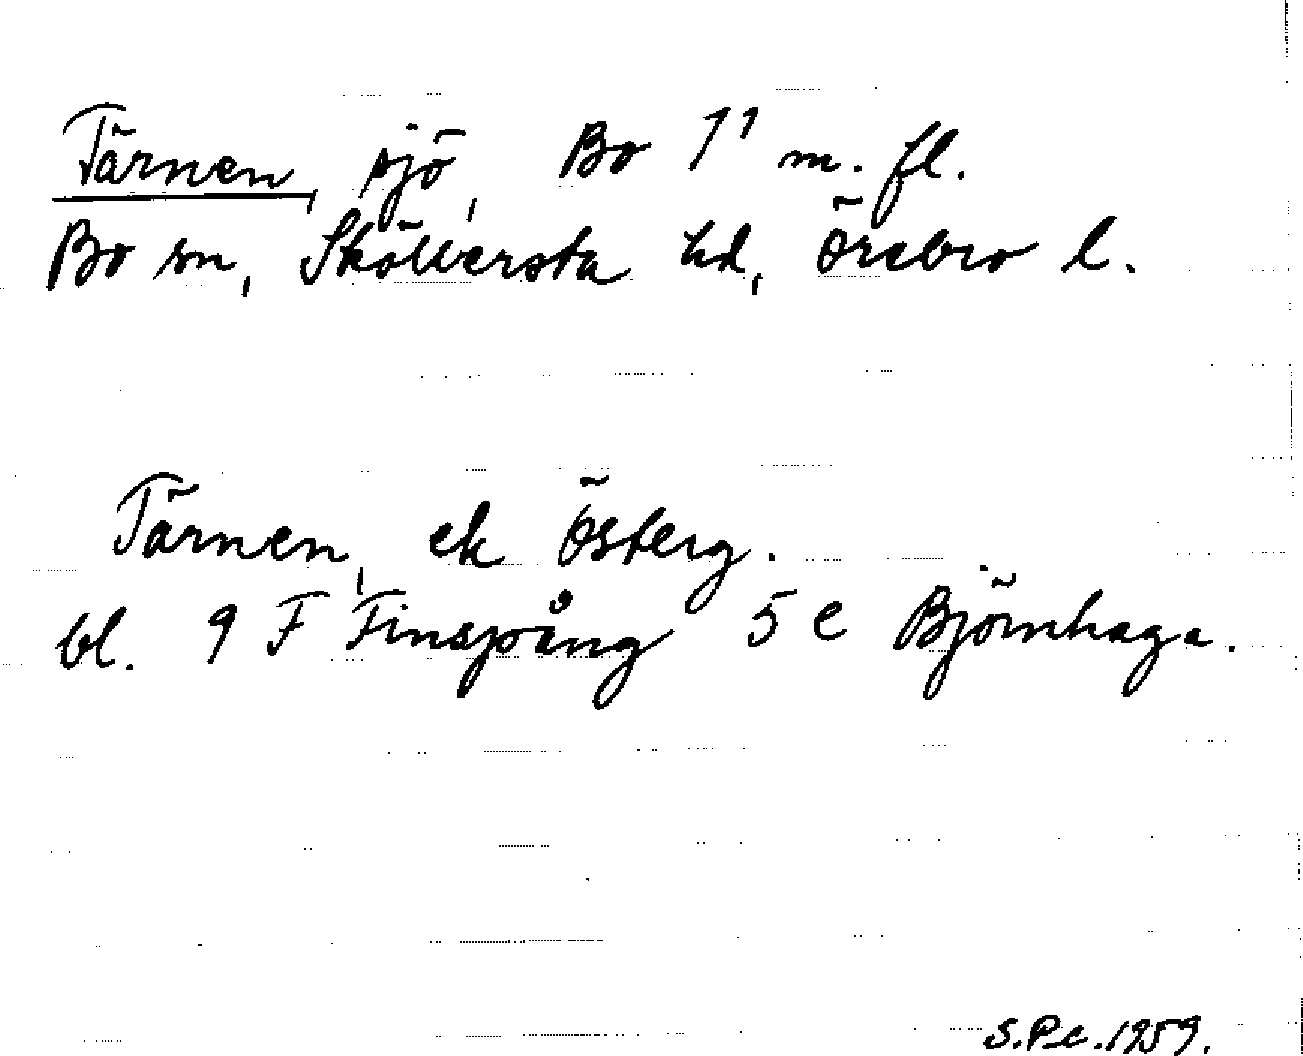 Tärnen, sjö, Bo 1¹ m. fl.
Bo sn, Sköllersta hd, Örebro l.
Tärnen, ek Österg.
bl. 9 F Finspång 5 e Björnhaga.
S.Pe. 1959.